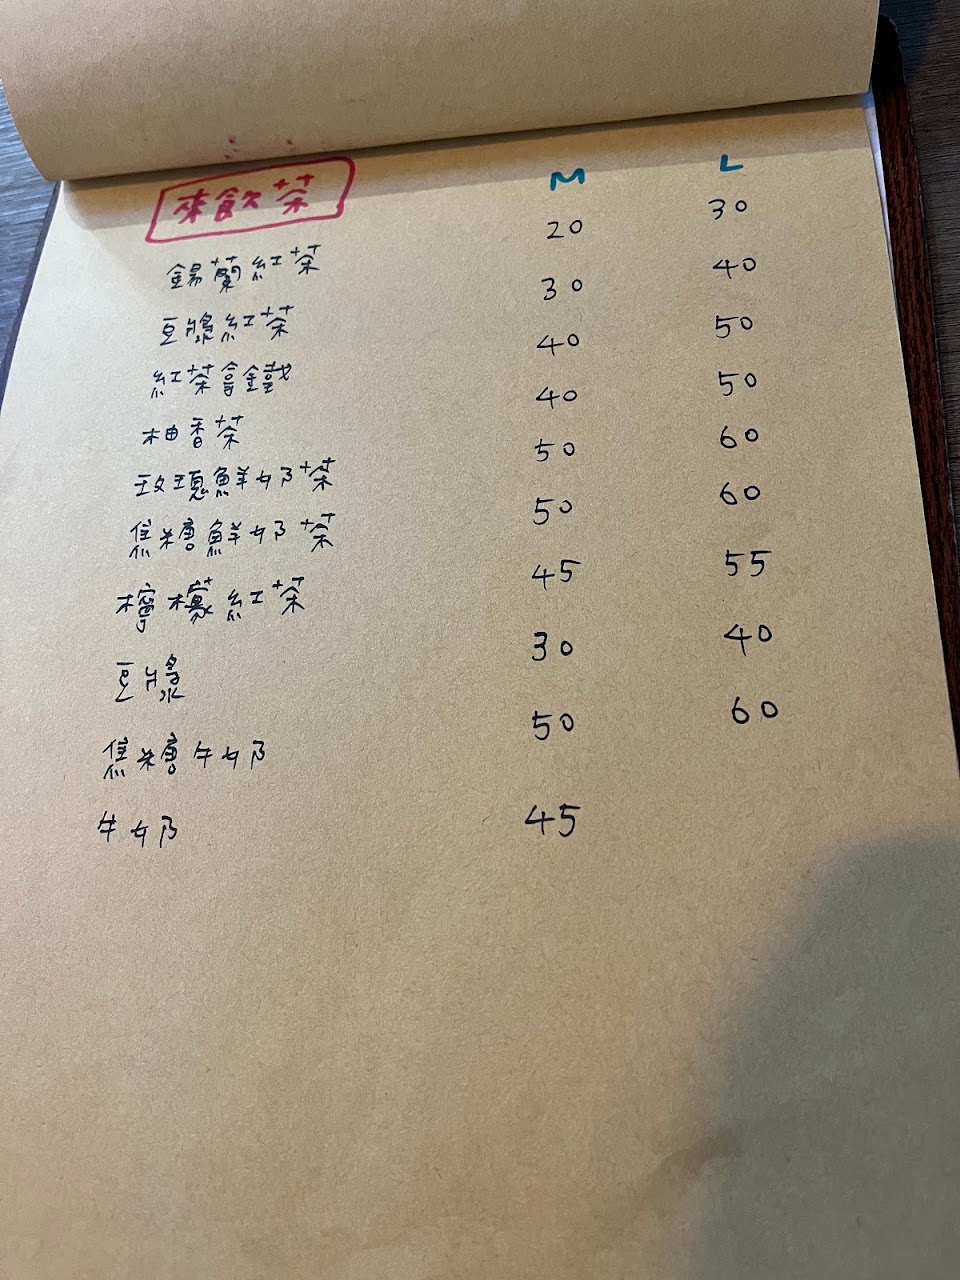 來飲茶 M L
錫蘭紅茶 20 30
豆漿紅茶 30 40
紅茶拿鐵 40 50
柚香茶 40 50
玫瑰鮮奶茶 50 60
焦糖鮮奶茶 50 60
檸檬紅茶 45 55
豆漿 30 40
焦糖牛奶 50 60
牛奶 45